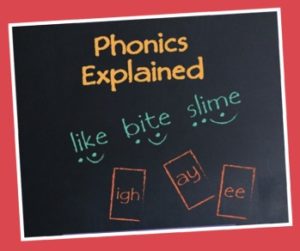 Phonics
Explained
like bite slime
igh ay ee